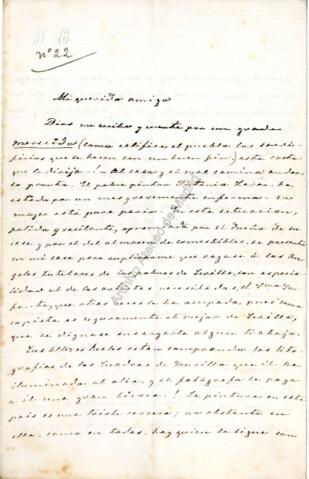 nº 22
Mi querido amigo
Dios me reciba y cuente por un grande
(como califica el pueblo los sacri-
ficios que se hacen con un buen fin) esta carta
que le dirijo! - Al caso y si mal camino andar
lo pronto. El pobre pintor Antonio
estado por un mes gravemente enfermo. Su
mujer está para parir. En esta situación,
palida y vacilante, apremiada por el Dueño de su
casa y por el del almacen de comestibles, se presentó
en mi casa para suplicarme que rogase á los An-
geles Tutelares de los pobres de Sevilla, con especia-
lidad al de los artistas necesitados, el
que otras veces le ha ocupado, pues como
copista es seguramente el mejor de Sevilla,
que se dignase encargarle algun trabajo.
Sus Altezas Reales están comprando las lito-
grafias de los Cuadros de Murillo que él ha
iluminado al olio, y el fotógrafo le paga
á él una gran ! La pintura en este
pais es una triste carrera; no obstante en
ella, como en todas, hay quien la sigue con